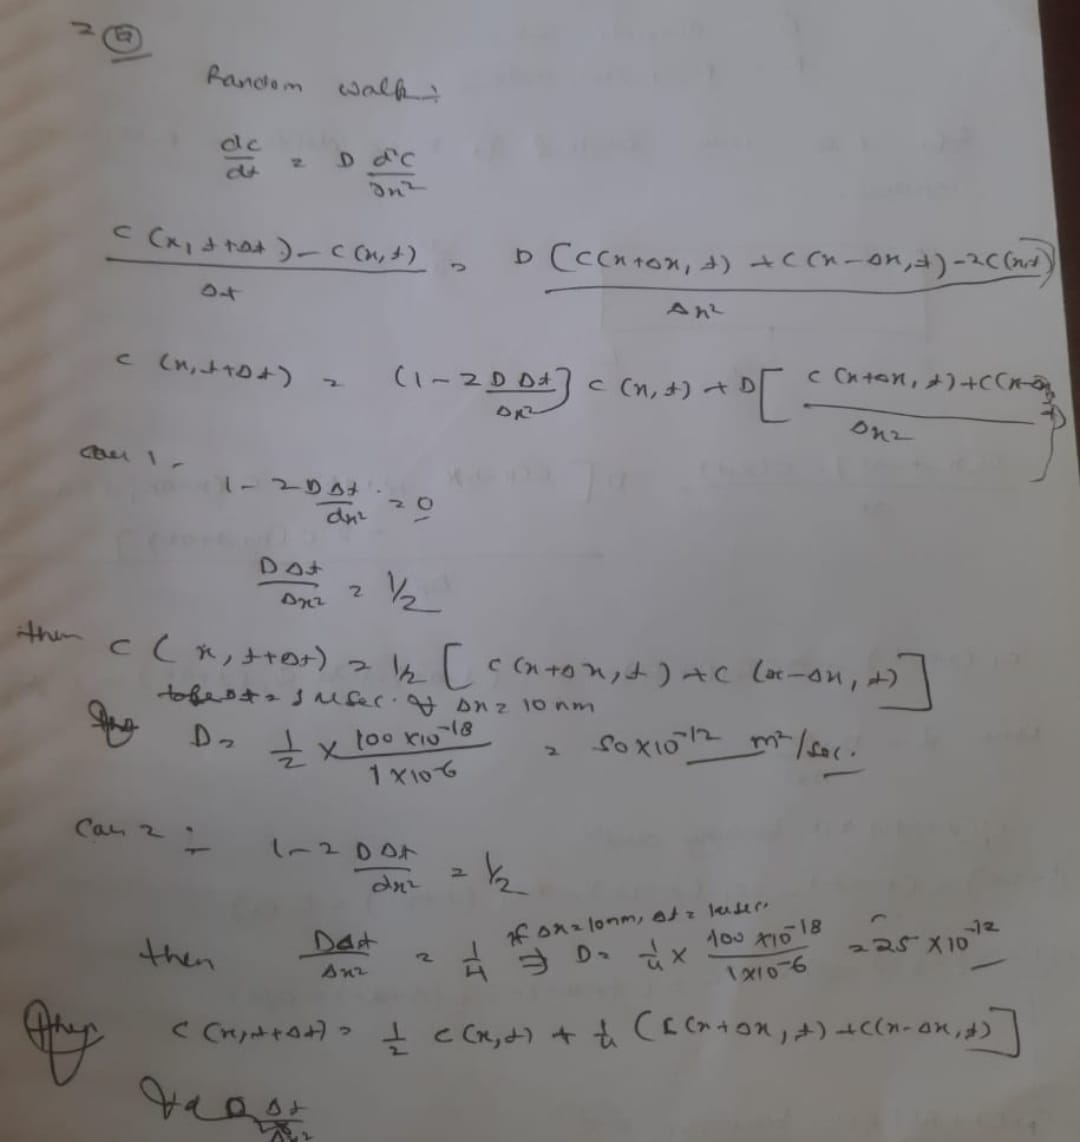 2 (b)
Random walk :-
dc/dt = D ∂²C/∂x²
(C(x, t+Δt) - C(x,t))/Δt = D [C(x+Δx, t) + C(x-Δx,t) - 2C(x,t)]/Δx²
C(x,t+Δt) = (1 - 2 D Δt/Δx²] C(x,t) + D [(C(x+Δx, t) + C(x-Δx, t))/Δx²]
1 - 2 D Δt/dx² = 0
D Δt/Δx² = 1/2
then C(x, t+Δt) = 1/2 [C(x+Δx,t) + C(x-Δx, t)]
Δt = 1 μsec. Δx = 10 nm
D = 1/2 × (100 ×10⁻¹⁸)/(1×10⁻⁶) = 50×10⁻¹² m²/sec.
Case 2 :- 1 - 2 D Δt/dx² = 1/2
then DΔt/Δx² = 1/4 if Δx = 10nm, Δt = 1μsec. ⇒ D = 1/4 × (100 ×10⁻¹⁸)/(1×10⁻⁶) = 25 ×10⁻¹²
C(x,t+Δt) = 1/2 C(x,t) + 1/4 (C(x+Δx,t) + C(x-Δx,t)]